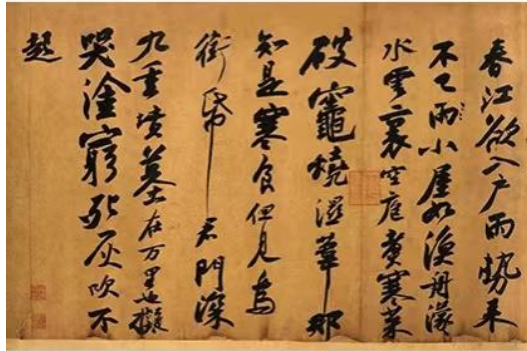 春江欲入戶雨勢来
不已雨小屋如漁舟濛〻
水雲裏空庖煮寒菜
破竈燒濕葦那
知是寒食但見烏
銜帋君門深
九重墳墓在万里也擬
哭塗窮死灰吹不
起